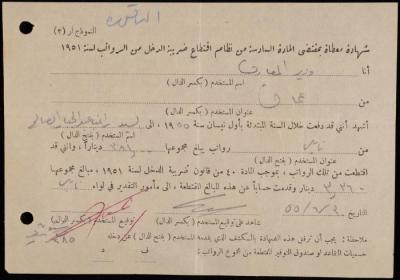 النموذج ار (٣)
شهادة معطاة بمقتضى المادة السادسة من نظام اقتطاع ضريبة الدخل من الرواتب لسنة ١٩٥١
أنا وزير المعارف
اسم المستخدم ( بكسر الدال )
من عمان
عنوان المستخدم ( بكسر الدال )
أشهد أنني قد دفعت خلال السنة المبتدئة بأول نيسان سنة ١٩٥٥ ، الى السيد
اسم المستخدم ( بفتح الدال )
من نابلس رواتب يبلغ مجموعها ديناراً ، وانني قد
عنوان المستخدم ( بفتح الدال )
اقتطعت من تلك الرواتب ، بموجب المادة ٤٠ من قانون ضريبة الدخل لسنة ١٩٥١ ، مبالغ مجموعها
دينار وقدمت حساباً عن هذه المبالغ المقتطعة ، الى مأمور التقدير في لواء نابلس
التاريخ
شاهد على توقيع المستخدم ( بكسر الدال ) توقيع المستخدم ( بكسر الدال )
ملاحظة : يجب أن ترفق هذه الشهادة بالكشف الذي يقدمه المستخدم ( بفتح الدال ) عن دخله
حسميات التقاعد او صندوق التوفير المقتطعة من مجموع الرواتب :